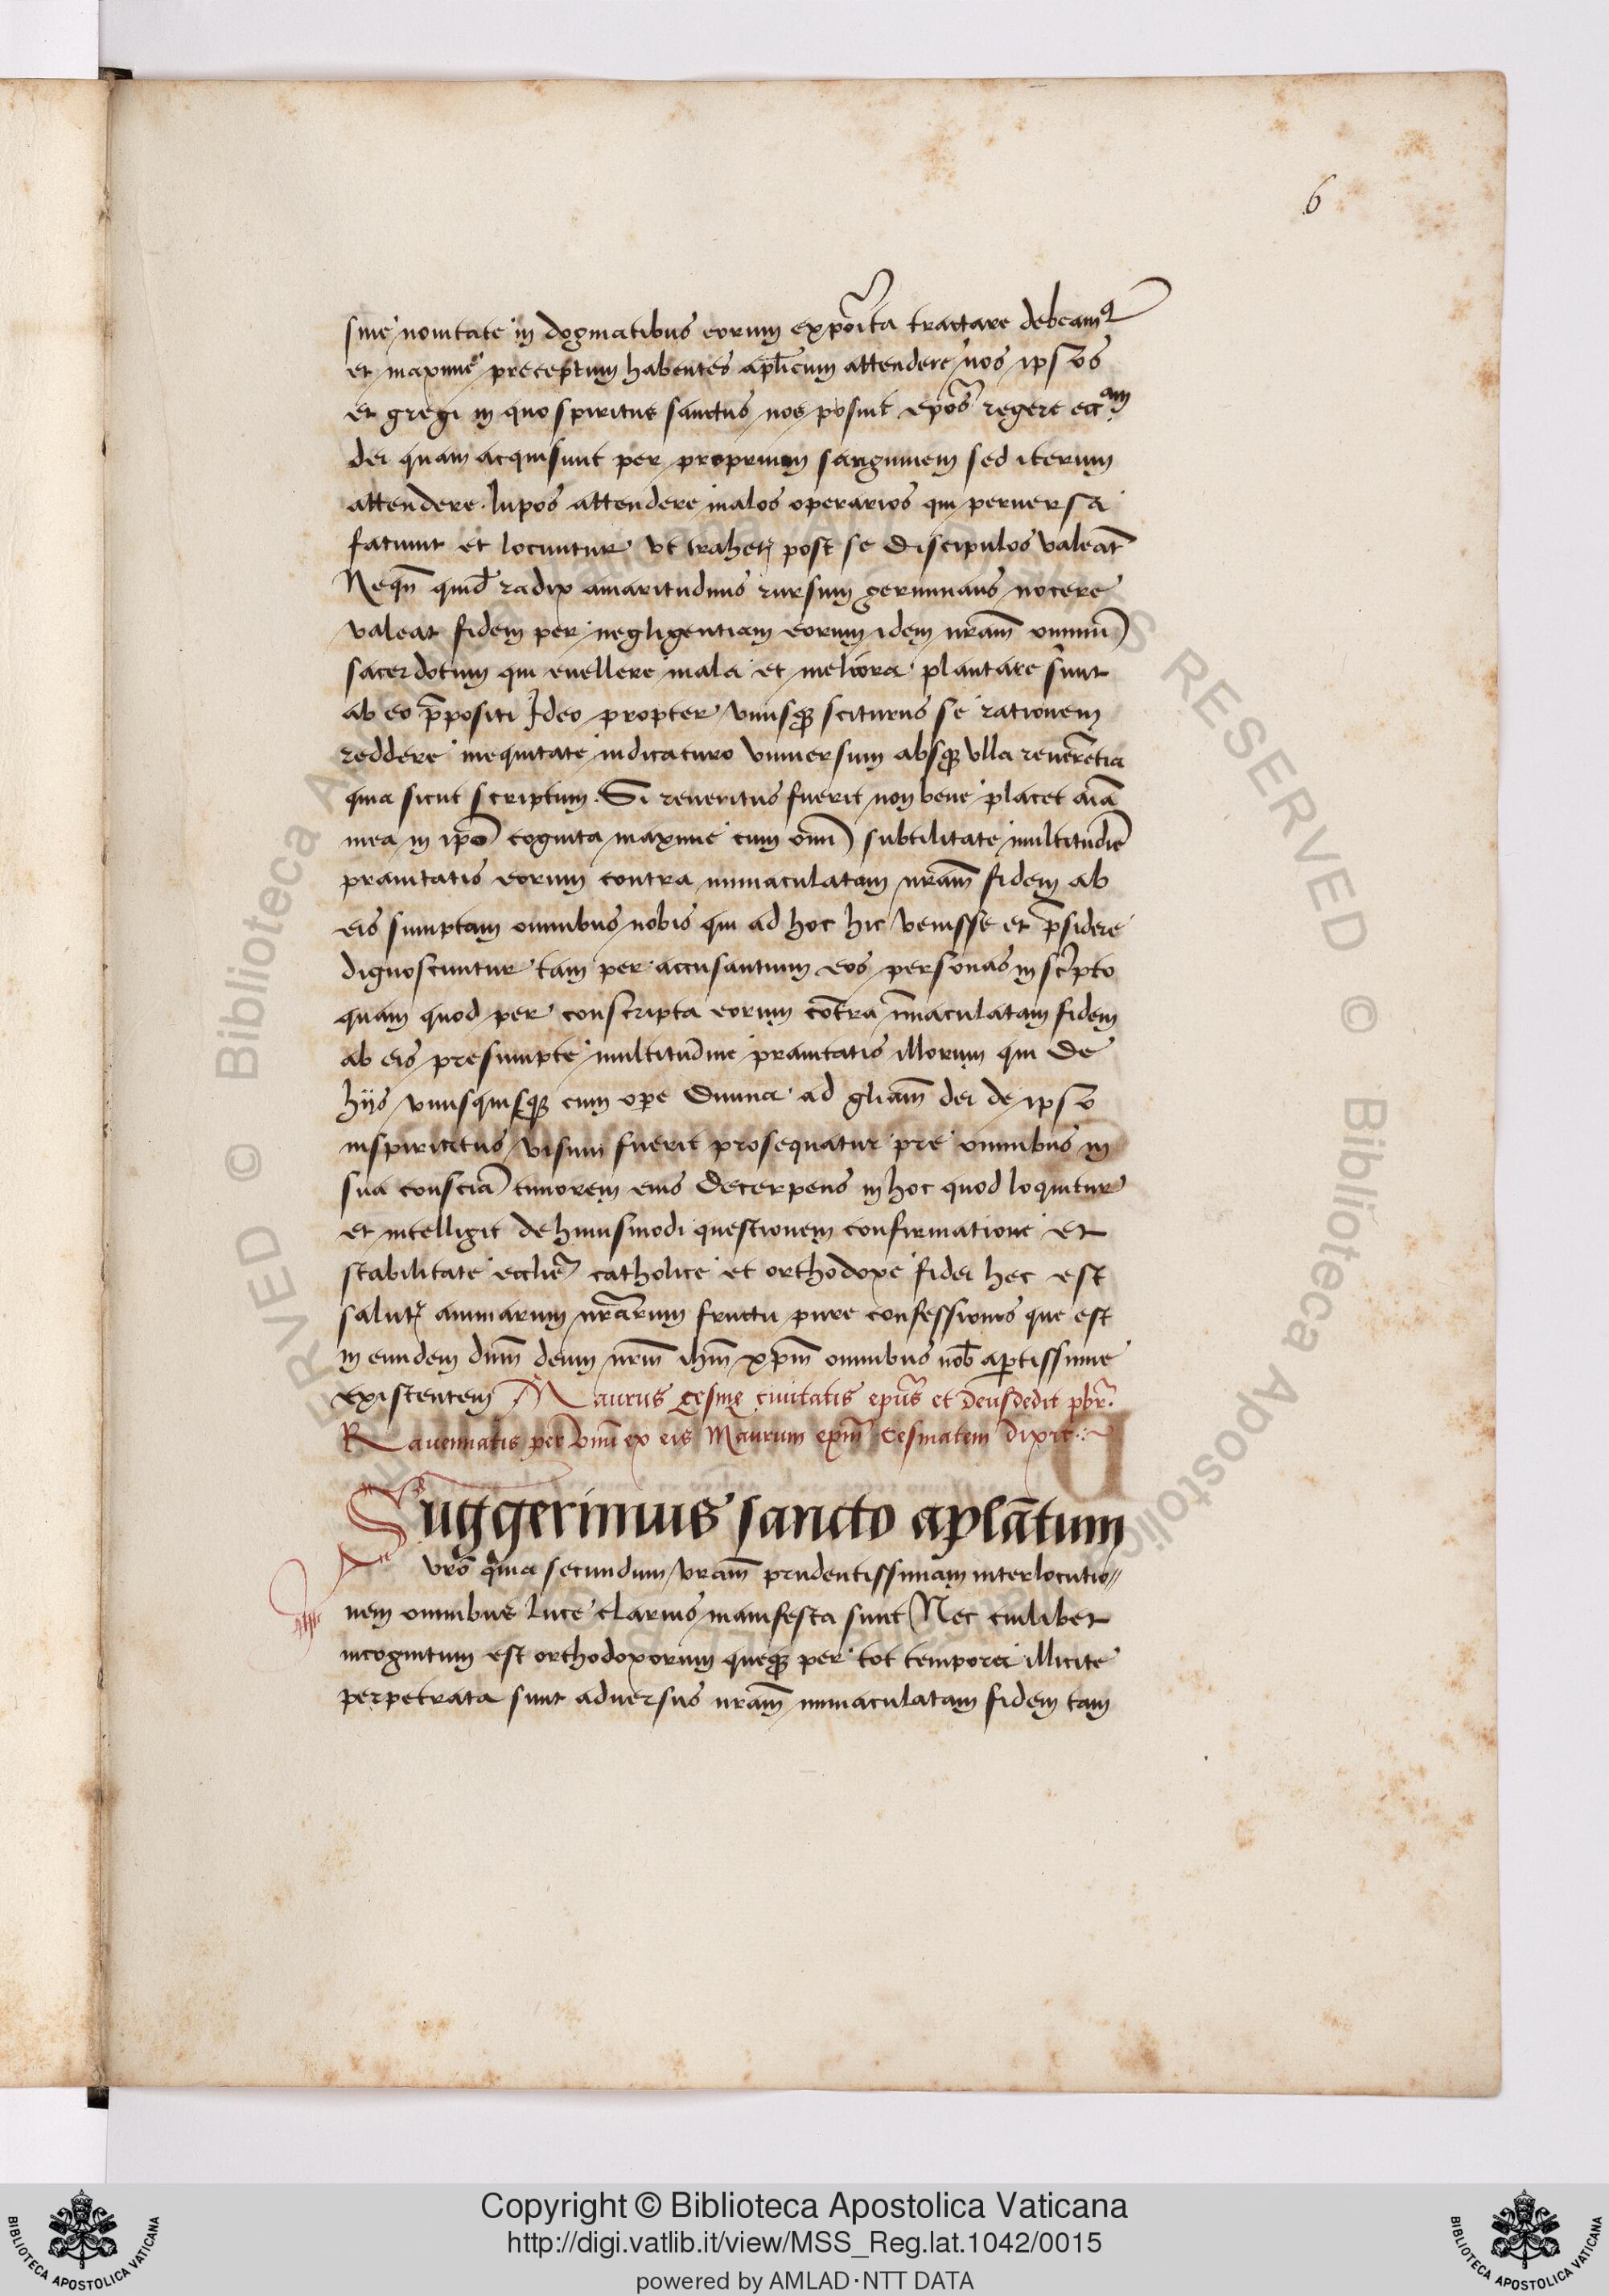 6
sine nouitate in dogmatibus eorum expoīta tractare debeamꝰ
et maxime preceptum habentes apl̄icum attendere nos ipsos
et gregi in quo spiritus sanctus nos posuit ep̄os regere eccam
dei quam acquisiuit per proprium sanguinem sed iterum
attendere lupos attendere malos operarios qui peruersa
faciunt et locuntur vt trahere post se discipulos valeāt
Nequn̄ quid radix amaritudinis rursum germinans nocere
valeat fidem per negligentiam eorum idem nr̄am omniū
sacerdotum qui euellere mala et meliora plantare sunt
ab eo p̄positi Ideo propter vnusqꝫ sciturus se rationem
reddere inequitate iudicaturo vniuersum absqꝫ vlla reuerētia
quia sicut scriptum. Si reueritus fuerit non bene placet aīa
mea in ip̄o cognita maxime cum om̄i subtilitate multitudīe
prauitatis eorum contra immaculatam nr̄am fidem ab
eis sumptam omnibus nobis qui ad hoc hic venisse et p̄sidere
dignoscuntur tam per accusantium eos personas in sc̄pto
quam quod per conscripta eorum cōtra īmaculatam fidem
ab eis presumpte multitudine prauitatis illorum qui de
hijs vnusquisqꝫ cum ope diuina ad gl̄iam dei de ipso
inspiritus visum fuerit prosequatur pre omnibus in
sua consciā timorem eius decerpens in hoc quod loquitur
et intelligit de huiusmodi questionem confirmatione et
stabilitate eccl̄ie catholice et orthodoxe fidei hec est
salutꝭ animarum nr̄arum fructu pure confessionis que est
in eundem dn̄m deum nr̄m ihm̄ xp̄m omnibus nob̄ aptissime
existentem Maurus Cesine ciuitatis ep̄us et deusdedit pb̄r.
Rauennatis per vnū ex eis Maurum ep̄m Cesinatem dixit
Suggerimus sancto apl̄atum
vr̄o quia secundum vr̄am prudentissimam interlocutio//
nem omnibus luce clarius manifesta sunt Nec cuilibet
incognitum est orthodoxorum queqꝫ per tot tempora illicite
perpetrata sunt aduersus nr̄am immaculatam fidem tam
Copyright © Biblioteca Apostolica Vaticana
http://digi.vatlib.it/view/MSS_Reg.lat.1042/0015
powered by AMLAD·NTT DATA
BIBLIOTECA APOSTOLICA VATICANA
BIBLIOTECA APOSTOLICA VATICANA